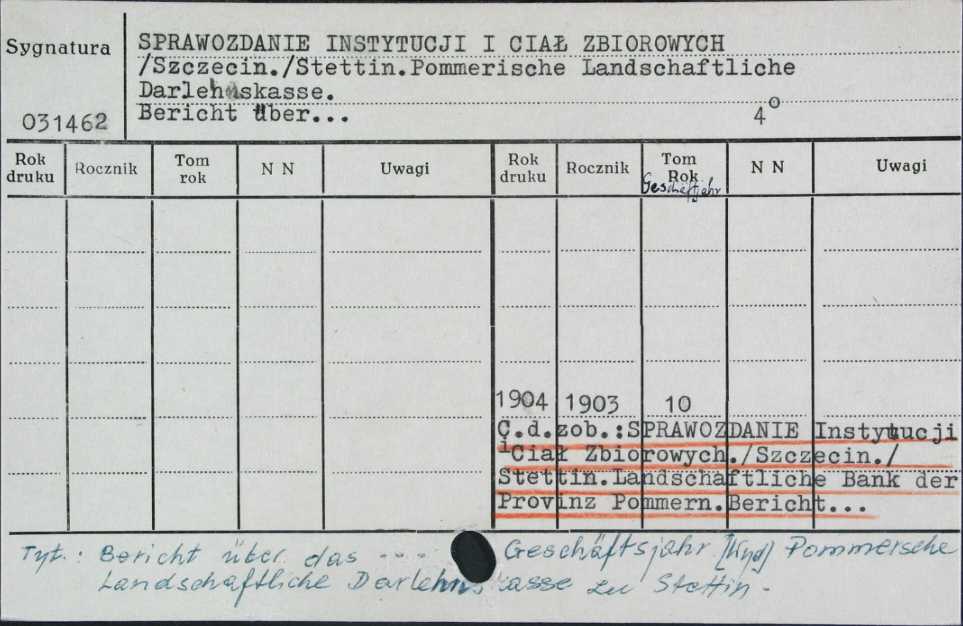 Sygnatura
SPRAWOZDANIE INSTYTUCJI I CIAŁ ZBIOROWYCH
/Szczecin./Stettin.Pommerische Landschaftliche
Darlehnskasse.
031462
Bericht über... 4°
Rok druku Rocznik Tom rok N N Uwagi Rok druku Rocznik Tom Rok N N Uwagi
Geschäftjahr
1904 1903 10
C.d.zob.:SPRAWOZDANIE Instytucji
i Ciał Zbiorowych./Szczecin./
Stettin.Landschaftliche Bank der
Provinz Pommern.Bericht...
Tyt.: Bericht über das ---- Geschäftsjahr Pommersche
Landschaftliche Darlehnskasse zu Stettin.